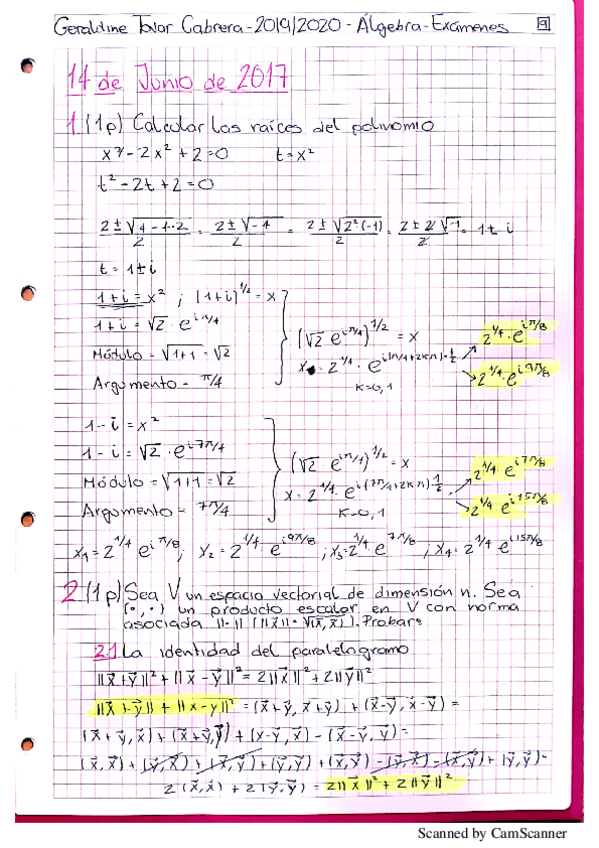 Geraldine Tovar Cabrera - 2019/2020 - Álgebra - Exámenes 9
14 de Junio de 2017
1. (1p) Calcular las raíces del polinomio
x⁴ - 2x² + 2 = 0 t = x²
t² - 2t + 2 = 0
2 ± √4 - 4·2 / 2 = 2 ± √-4 / 2 = 2 ± √2²(-1) / 2 = 2 ± 2√-1 / 2 = 1 ± i
t = 1 ± i
1 + i = x² ; (1+i)^1/2 = x
1 + i = √2 · e^iπ/4
(√2 e^iπ/4)^1/2 = x
2^1/4 · e^iπ/8
Módulo = √1+1 = √2
x = 2^1/4 · e^i(π/4+2kπ)·1/2
2^1/4 · e^i9π/8
Argumento = π/4
k=0,1
1 - i = x²
1 - i = √2 · e^i7π/4
(√2 e^iπ/4)^1/2 = x
2^1/4 e^i7π/8
Módulo = √1+1 = √2
x = 2^1/4 · e^i(7π/4+2kπ)1/2
2^1/4 e^i15π/8
Argumento = 7π/4
k=0,1
x₁ = 2^1/4 e^iπ/8 ; x₂ = 2^1/4 · e^i9π/8 ; x₃ = 2^1/4 e^7π/8 ; x₄ = 2^1/4 e^i15π/8
2 (1p) Sea V un espacio vectorial de dimensión n. Sea
(·,·) un producto escalar en V con norma
asociada ||·|| (||x⃗|| = √(x⃗,x⃗)). Probar:
2.1 La identidad del paralelogramo
||x⃗+y⃗||² + ||x⃗-y⃗||² = 2||x⃗||² + 2||y⃗||²
||x⃗+y⃗|| + ||x-y||² = (x⃗+y⃗, x⃗+y⃗) + (x⃗-y⃗, x⃗-y⃗) =
(x⃗+y⃗, x⃗) + (x⃗+y⃗, y⃗) + (x-y, x⃗) - (x⃗-y⃗, y⃗) =
(x⃗,x⃗) + (y⃗,x⃗) + (x⃗,y⃗) + (y⃗,y⃗) + (x⃗,x⃗) - (y⃗,x⃗) - (x⃗,y⃗) + (y⃗,y⃗) =
2(x⃗,x⃗) + 2(y⃗,y⃗) = 2||x⃗||² + 2||y⃗||²
Scanned by CamScanner